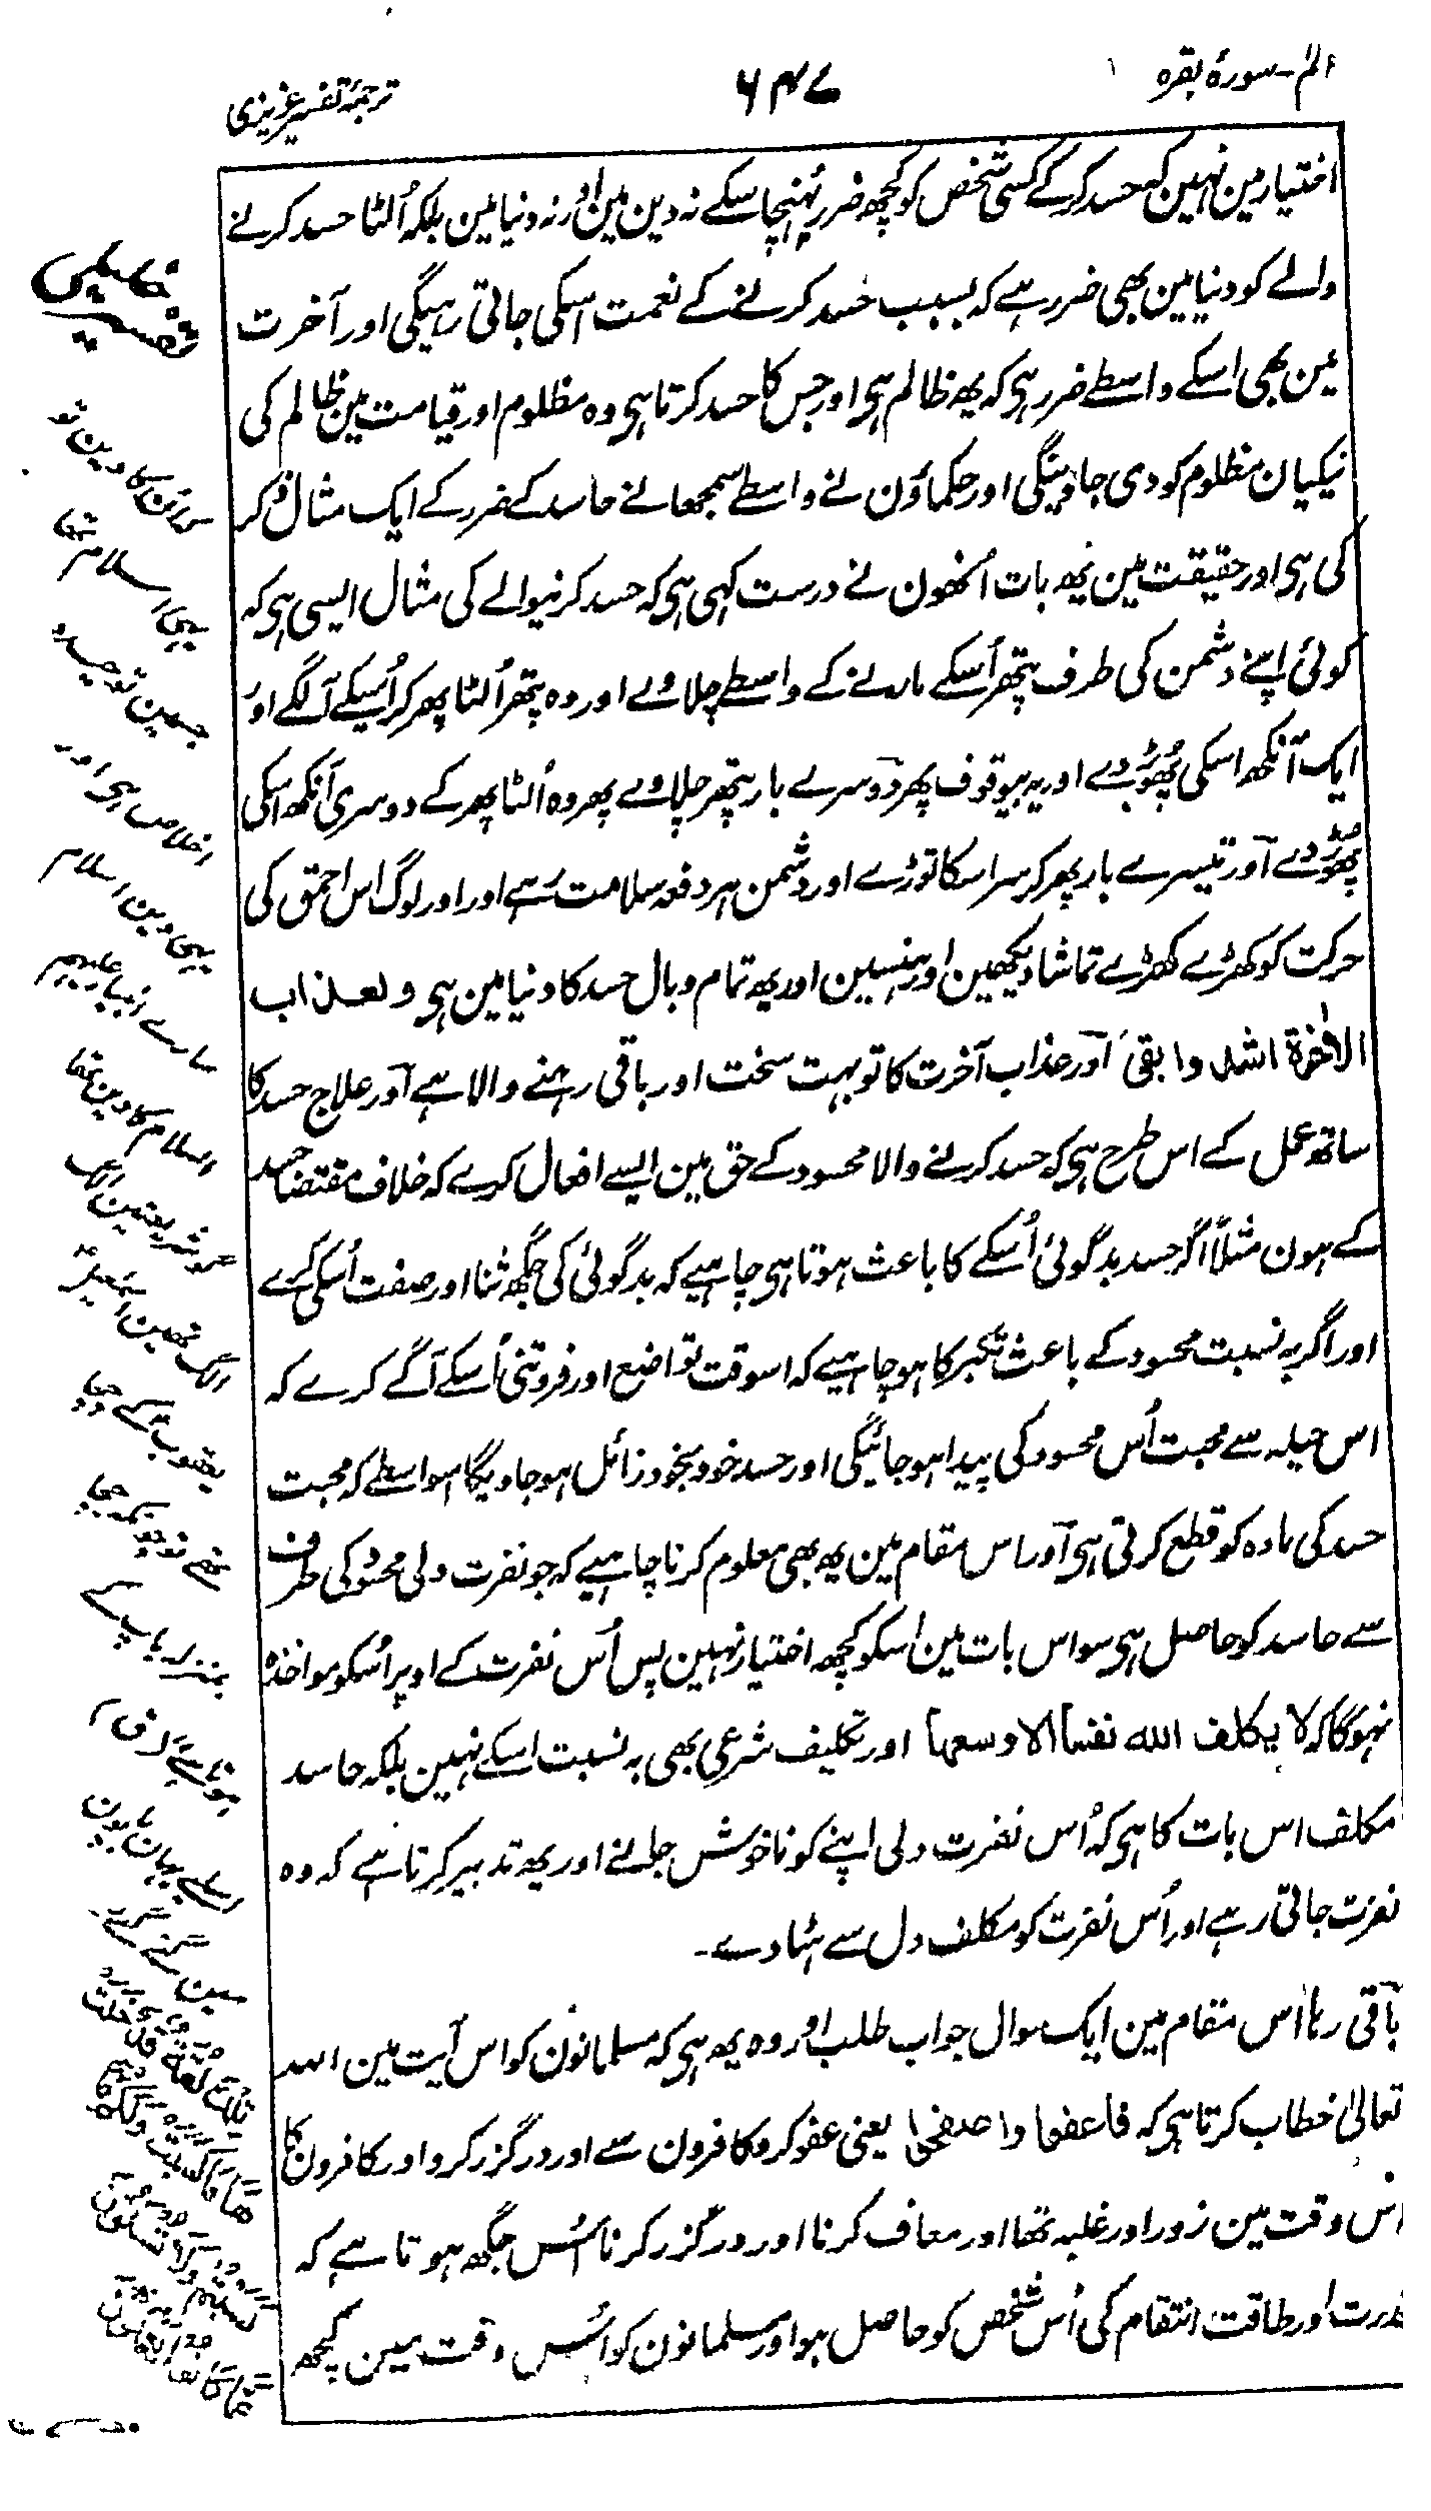 الم - سورهٔ بقره
۶۴۷
ترجمهٔ تفسیر عزیزی
اختیار مین نہین کہ حسد کرکے کسی شخص کو کچھ ضرر پہنچا سکے نہ دین مین اور نہ دنیا مین بلکہ اُلٹا حسد کرنے
والے کو دنیا مین بھی ضرر ہے کہ بسبب حسد کرنے کے نعمت اسکی جاتی رہیگی اور آخرت
مین بھی اسکے واسطے ضرر ہی کہ یہ ظالم ہی اور جس کا حسد کرتا ہی وہ مظلوم اور قیامت مین ظالم کی
نیکیان مظلوم کو دی جاوینگی اور حکماؤن نے واسطے سمجھانے حاسد کے ضرر کے ایک مثال ذکر
کی ہی اور حقیقت مین یہ بات اُنھون نے درست کہی ہی کہ حسد کرنیوالے کی مثال ایسی ہی کہ
کوئی اپنے دشمن کی طرف پتھر اُسکے مارنے کے واسطے چلاوے اور وہ پتھر اُلٹا پھر کر اُسیکے آلگے اور
ایک آنکھ اسکی پھوڑ دے اور یہ بیوقوف پھر دوسرے بار پتھر چلاوے پھر وہ اُلٹا پھر کے دوسری آنکھ اسکی
پھوڑ دے اور تیسرے بار پھر کر سر اسکا توڑے اور دشمن ہر دفعہ سلامت رہے اور اور لوگ اس احمق کی
حرکت کو کھڑے کھڑے تماشا دیکھین اور ہنسین اور یہ تمام وبال حسد کا دنیا مین ہی ولعذاب
الاخرة اشد وابقی اور عذاب آخرت کا تو بہت سخت اور باقی رہنے والا ہے اور علاج حسد کا
ساتھ عمل کے اس طرح ہی کہ حسد کرنے والا محسود کے حق مین ایسے افعال کرے کہ خلاف مقتضا حسد
کے ہون مثلاً اگر حسد بدگوئی اُسکے کا باعث ہوتا ہی چاہیے کہ بدگوئی کی جگھ ثنا اور صفت اُسکی کرے
اور اگر بہ نسبت محسود کے باعث تکبر کا ہو چاہیے کہ اسوقت تواضع اور فروتنی اُسکے آگے کرے کہ
اس حیلہ سے محبت اُس محسود کی پیدا ہوجائیگی اور حسد خود بخود زائل ہو جاویگا اسواسطے کہ محبت
حسد کی مادہ کو قطع کرتی ہی اور اس مقام مین یہ بھی معلوم کرنا چاہیے کہ جو نفرت دلی محسود کی طرف
سے حاسد کو حاصل ہی سو اس بات مین اسکو کچھ اختیار نہین پس اُس نفرت کے اوپر اُسکو مواخذہ
نہوگا کہ لا یکلف الله نفسا الا وسعها اور تکلیف شرعی بھی بہ نسبت اسکے نہین بلکہ حاسد
مکلف اس بات کا ہی کہ اُس نفرت دلی اپنے کو ناخوش جانے اور یہ تدبیر کرتا ہے کہ وہ
نفرت جاتی رہے اور اُس نفرت کو مکلف دل سے ہٹا دے۔
باقی رہا اس مقام مین ایک سوال جواب طلب اور وہ یہ ہی کہ مسلمانون کو اس آیت مین اللہ
تعالیٰ خطاب کرتا ہی کہ فاعفوا واصفحوا یعنی عفو کرو کافرون سے اور درگزر کرو اور کافرون کا
اس وقت مین زور اور غلبہ تھا اور معاف کرنا اور درگزر کرنا اُس جگھ ہوتا ہے کہ
قدرت اور طاقت انتقام کی اُس شخص کو حاصل ہو اور مسلمانون کو اُس وقت مین کچھ
کا دین تو
اسلام تھا
جسمین توحید
اخلاص ہی اور
یہی دین اسلام
سارے انبیا علیہم
السلام کا دین تھا
یعقوب کے چچا
تھے تو
بمنزلہ باپ کے
ہوئے